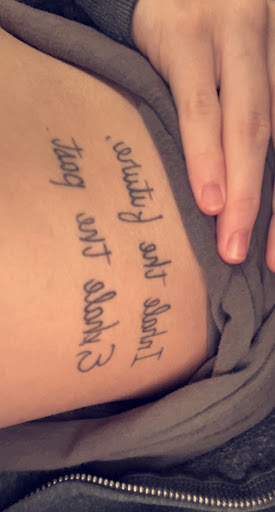 Inhale the future,
Exhale the past